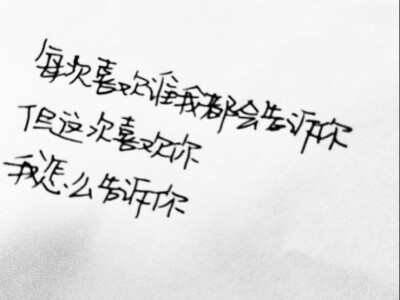 每次喜欢谁我都会告诉你
但这次喜欢你
我怎么告诉你